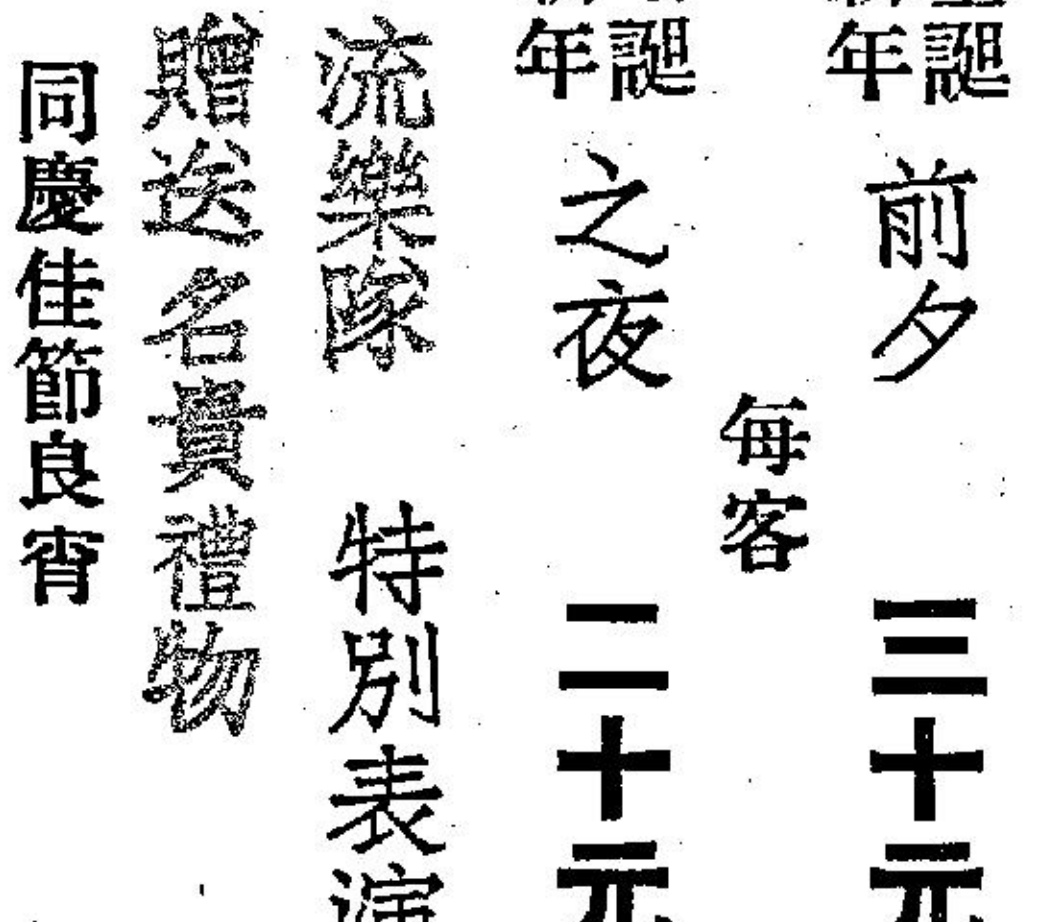 誕年前夕 三十元
每客
誕年之夜 二十元
流樂隊 特別表演
贈送名貴禮物
同慶佳節良宵